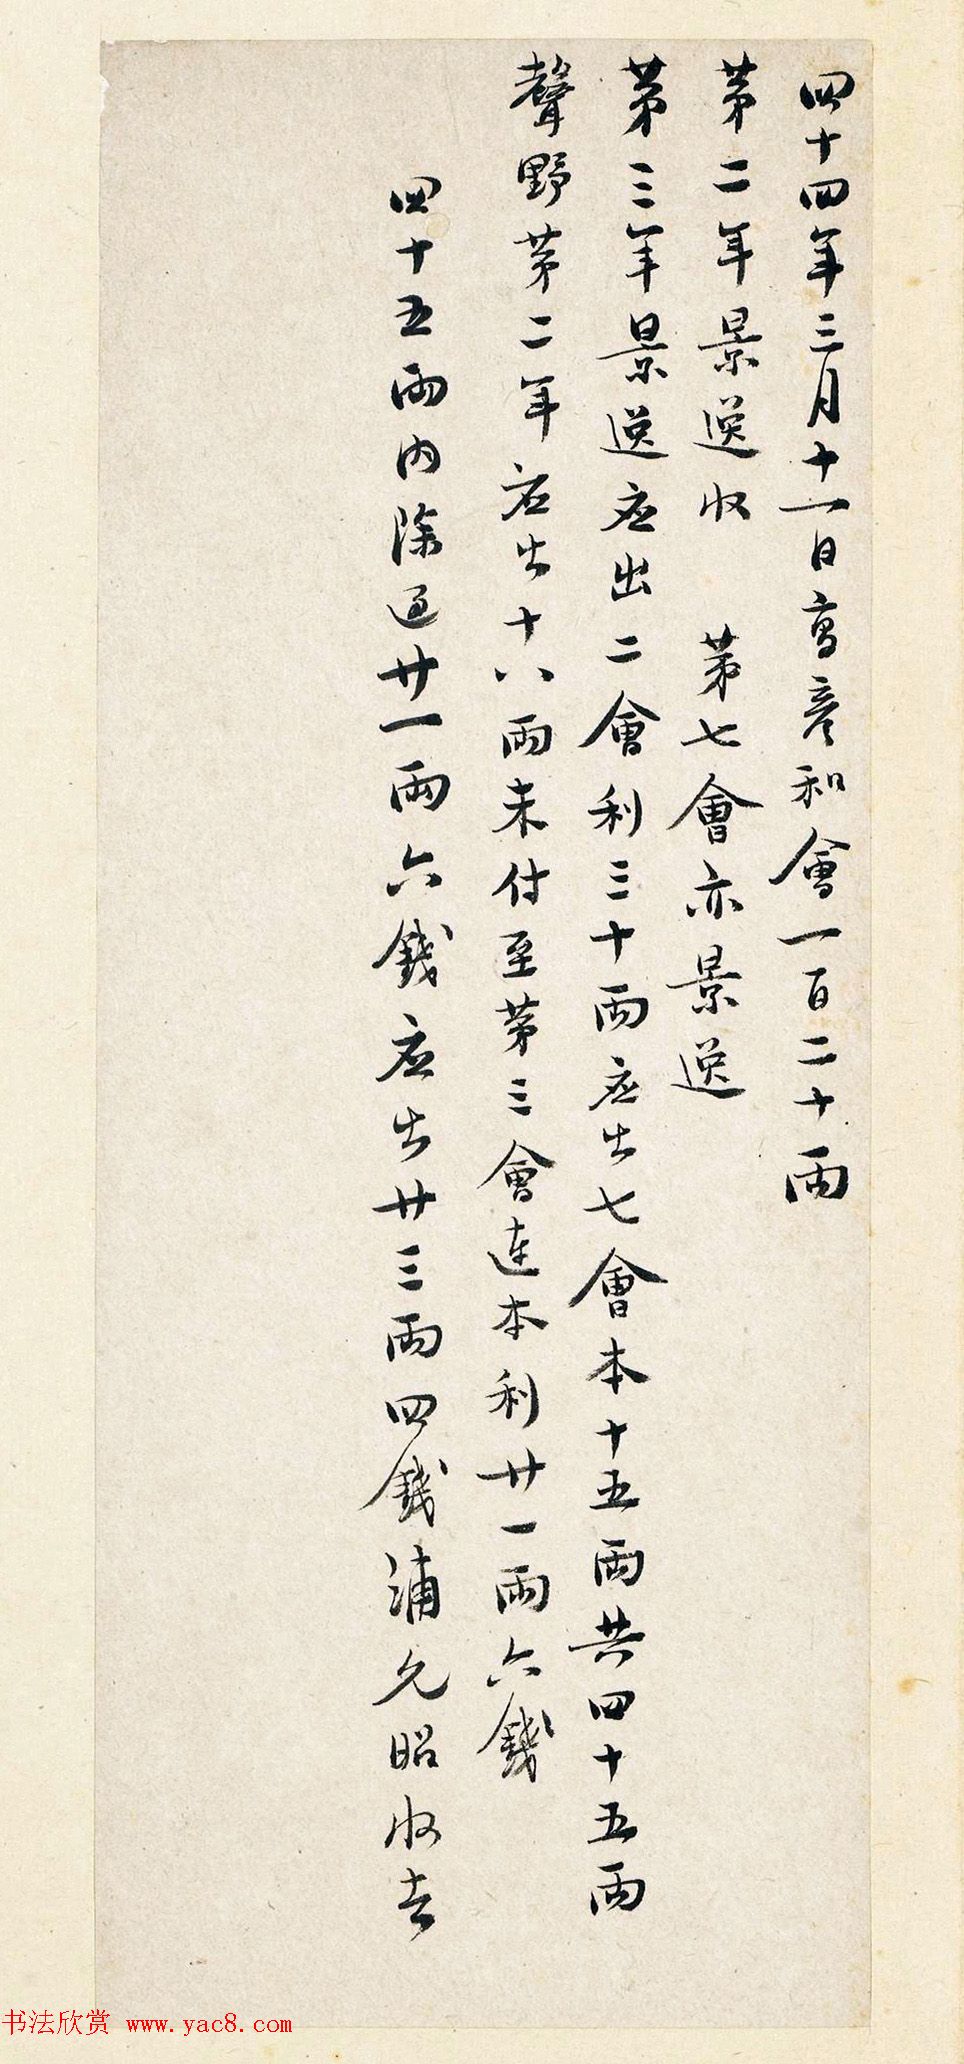 四十四年三月十一日高彥和會一百二十兩
第二年景逸收 第七會亦景逸
第三年景逸应出二會利三十兩应出七會本十五兩共四十五兩
聲野第二年应出十八兩未付至第三會連本利廿一兩六錢
四十五兩内除過廿一兩六錢应出廿三兩四錢浦允昭收去
书法欣赏 www.yac8.com